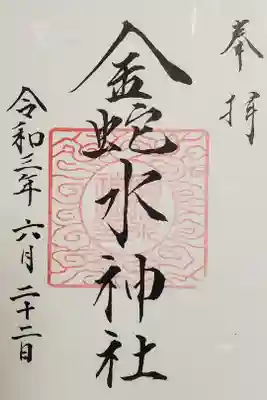 奉拝
金蛇水神社
令和三年六月二十二日